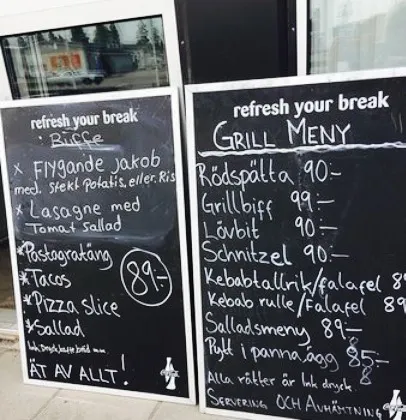 refresh your break
Biffe
x Flygande jakob
med. stekt potatis, eller Ris
x Lasagne med
Tomat sallad
*Pastagratäng
*Tacos
*Pizza slice
*Sallad
89:-
Ink. Dryck, kaffe bröd mm
ÄT AV ALLT!
refresh your break
GRILL MENY
Rödspätta 90:-
Grillbiff 99:-
Lövbit 90:-
Schnitzel 90:-
Kebabtallrik/falafel 89
Kebab rulle/Falafel 89
Salladsmeny 89:-
Pytt i panna,ägg 85:-
Alla rätter är Ink dryck
SERVERING OCH AVHÄMTNING